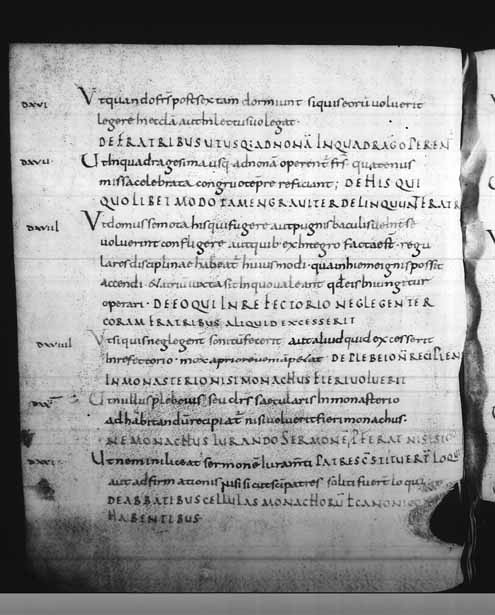 DXVI Ut quando frs post sextam dormiunt si quis eorū voluerit
legere in lectulo legat
DE FRATRIBUS UT USQ; AD NONĀ IN QUADRAGO PEREN
DXVII Ut in quadragesima usq; ad nonā operent̄ frs quatenus
missa celebrata congruo tēpre reficiant; DE HIS QUI
QUOLIBET MODO TAMEN GRAUITER DELINQUUNT FRATR
DXVIII Ut domus semota his qui fugere aut pugnis baculis
voluerint confligere aut quib; ex integro facta est regu
laris disciplinae habeat̄ huiusmodi quam hieme ignis possit
accendi & atriū iuxta sit in quo valeant qd eis iniungitur
operari DE EO QUI IN REFECTORIO NEGLEGENTER
CORAM FRATRIBUS ALIQUID EXCESSERIT
DXVIIII Ut si quis neglegent sonitū fecerit aut aliud quid excesserit
in refectorio mox a priore veniā petat DE PLEBEIO Ñ RECIPIEN
IN MONASTERIO NISI MONACHUS FIERI VOLUERIT
DXX Ut nullus plebeius seu clrs saecularis in monasterio
ad habitandū recipiat̄ nisi voluerit fieri monachus
NE MONACHUS IURANDO SERMONE PFERAT NISI SIC
DXXI Ut nemini liceat sermonē iuram̄ti PATRES CSTITUERT LOQ
aut adfirmationis nisi sicut scī patres soliti fuert loqui
DE ABBATIBUS CELLULAS MONACHORŪ ET CANONIC
HABENTIBUS